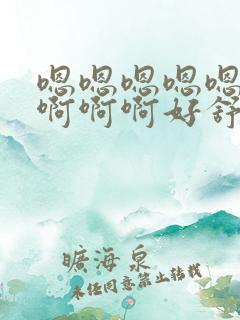 嗯嗯嗯嗯嗯
啊啊啊好舒
曠海泉
未经同意禁止转载